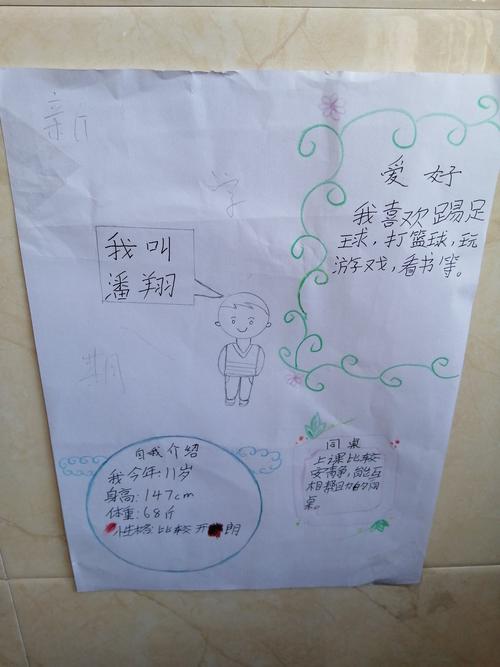 新
学
期
爱好
我喜欢踢足
球，打篮球，玩
游戏，看书等。
我叫
潘翔
自我介绍
我今年：11岁
身高：147cm
体重：68斤
性格比较开朗
同桌
上课比较
安静，能互
相帮助的同
桌。